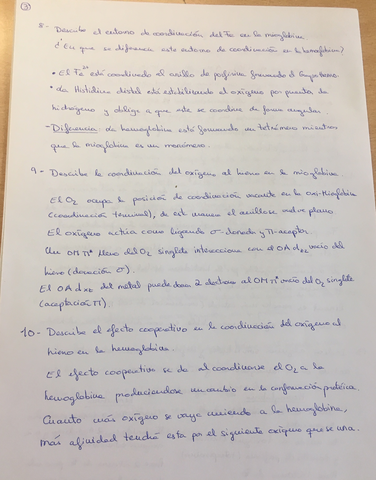 ③
8- Describe el entorno de coordinación del Fe en la mioglobina
¿En qué se diferencia este entorno de coordinación en la hemoglobina?
• El Fe²⁺ está coordinado al anillo de porfirina formando el Grupo Hemo
• La Histidina distal está estabilizando el oxígeno por puente de
hidrógeno y obliga a que este se coordine de forma angular.
- Diferencia: la hemoglobina está formando un tetrámero mientras
que la mioglobina es un monómero.
9- Describe la coordinación del oxígeno al hierro en la mioglobina
El O₂ ocupa la posición de coordinación vacante en la
(coordinación terminal), de esta manera el anillo se vuelve plano
El oxígeno actúa como ligando σ-donador y π-aceptor.
Un OM π* lleno del O₂ singlete interacciona con el OA dz² vacío del
hierro (donación σ).
El OA dxz del metal puede donar 2 electrones al OM π* vacío del O₂ singlete
(aceptación π).
10- Describe el efecto cooperativo en la coordinación del oxígeno al
hierro en la hemoglobina.
El efecto cooperativo se da al coordinarse el O₂ a la
hemoglobina produciendose un cambio en la conformación proteica
Cuanto más oxígeno se vaya uniendo a la hemoglobina,
más afinidad tendrá esta por el siguiente oxígeno que se una.